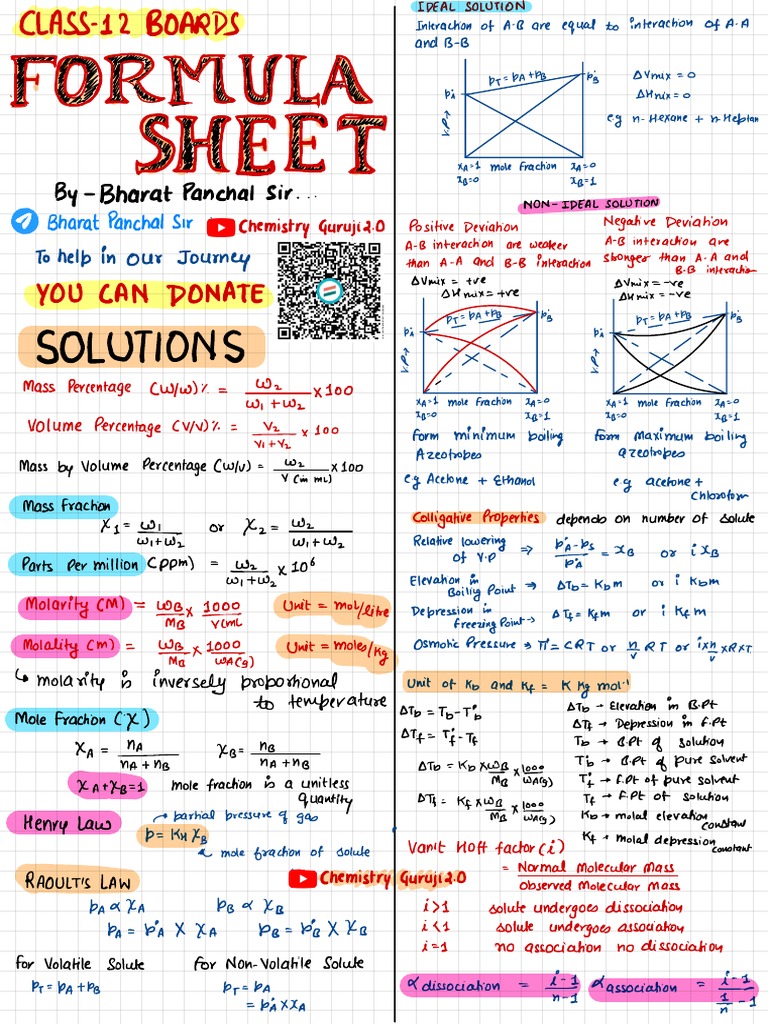 CLASS-12 BOARDS
FORMULA
SHEET
By - Bharat Panchal Sir...
Bharat Panchal Sir
Chemistry Guruji 2.0
To help in our Journey
YOU CAN DONATE
SOLUTIONS
Mass Percentage (w/w)% = w₂ / (w₁ + w₂) × 100
Volume Percentage (V/V)% = V₂ / (V₁ + V₂) × 100
Mass by Volume Percentage (w/v) = w₂ / V (in mL) × 100
Mass Fraction
χ₁ = w₁ / (w₁ + w₂) or χ₂ = w₂ / (w₁ + w₂)
Parts Per million (ppm) = w₂ / (w₁ + w₂) × 10⁶
Molarity (M) = w_B / M_B × 1000 / V(mL Unit = mol/litre
Molality (m) = w_B / M_B × 1000 / w_A(g) Unit = moles/kg
↳ molarity is inversely proportional
to temperature
Mole Fraction (χ)
χ_A = n_A / (n_A + n_B) χ_B = n_B / (n_A + n_B)
χ_A + χ_B = 1 mole fraction is a unitless
quantity
Henry Law
partial pressure of gas
p = K_H χ_B
mole fraction of solute
RAOULT'S LAW
Chemistry Guruji 2.0
p_A ∝ χ_A p_B ∝ χ_B
p_A = p°_A × χ_A p_B = p°_B × χ_B
for Volatile Solute for Non-Volatile Solute
p_T = p_A + p_B p_T = p_A
= p°_A × χ_A
IDEAL SOLUTION
Interaction of A-B are equal to interaction of A-A
and B-B
p_T = p_A + p_B
p°_A
p°_B
V.P→
ΔVmix = 0
ΔHmix = 0
eg n-Hexane + n-Heptan
x_A=1 mole fraction x_A=0
x_B=0 x_B=1
NON-IDEAL SOLUTION
Positive Deviation
A-B interaction are weaker
than A-A and B-B interaction
ΔVmix = +ve
ΔHmix = +ve
p_T = p_A + p_B
p°_A
p°_B
V.P→
x_A=1 mole fraction x_A=0
x_B=0 x_B=1
form minimum boiling
Azeotropes
eg Acetone + Ethanol
Negative Deviation
A-B interaction are
stronger than A-A and
B-B interaction
ΔVmix = -ve
ΔHmix = -ve
p_T = p_A + p_B
p°_A
p°_B
V.P→
x_A=1 mole fraction x_A=0
x_B=0 x_B=1
form maximum boiling
azeotropes
eg acetone +
Chloroform
Colligative Properties depends on number of solute
Relative lowering
of V.P ⇒ (p°_A - p_s) / p°_A = x_B or i x_B
Elevation in
Boiling Point → ΔT_b = K_b m or i K_b m
Depression in
freezing Point → ΔT_f = K_f m or i K_f m
Osmotic Pressure → π = CRT or n/v RT or i×n/v × R×T
Unit of K_b and K_f = K Kg mol⁻¹
ΔT_b = T_b - T°_b
ΔT_f = T°_f - T_f
ΔT_b = K_b × w_B / M_B × 1000 / w_A(g)
ΔT_f = K_f × w_B / M_B × 1000 / w_A(g)
ΔT_b → Elevation in B.Pt
ΔT_f → Depression in f.Pt
T_b → B.Pt of solution
T°_b → B.Pt of pure solvent
T°_f → f.Pt of pure solvent
T_f → f.Pt of solution
K_b → molal elevation
constant
K_f → molal depression
constant
Vanit Hoff factor (i)
= Normal Molecular Mass / Observed Molecular Mass
i>1 solute undergoes dissociation
i<1 solute undergoes association
i=1 no association no dissociation
α dissociation = (i-1) / (n-1) α association = (i-1) / (1/n - 1)